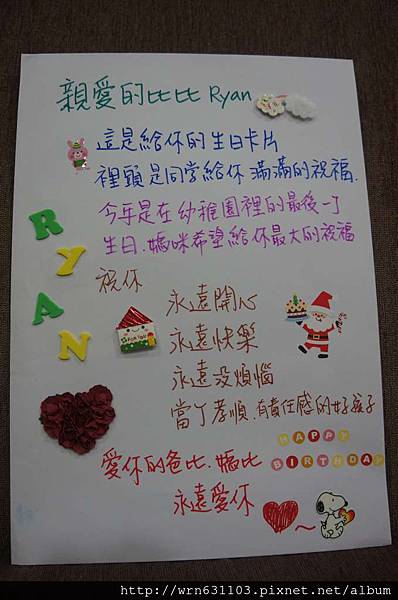 親愛的比比 Ryan
這是給你的生日卡片
裡頭是同學給你滿滿的祝福.
今年是在幼稚園裡的最後一个
生日.媽咪希望給你最大的祝福
RYAN
祝你
永遠開心
永遠快樂
永遠沒煩惱
當个孝順.有責任感的好孩子
HAPPY
BIRTHDAY
愛你的爸比.媽比
永遠愛你
http://wrn631103.pixnet.net/album